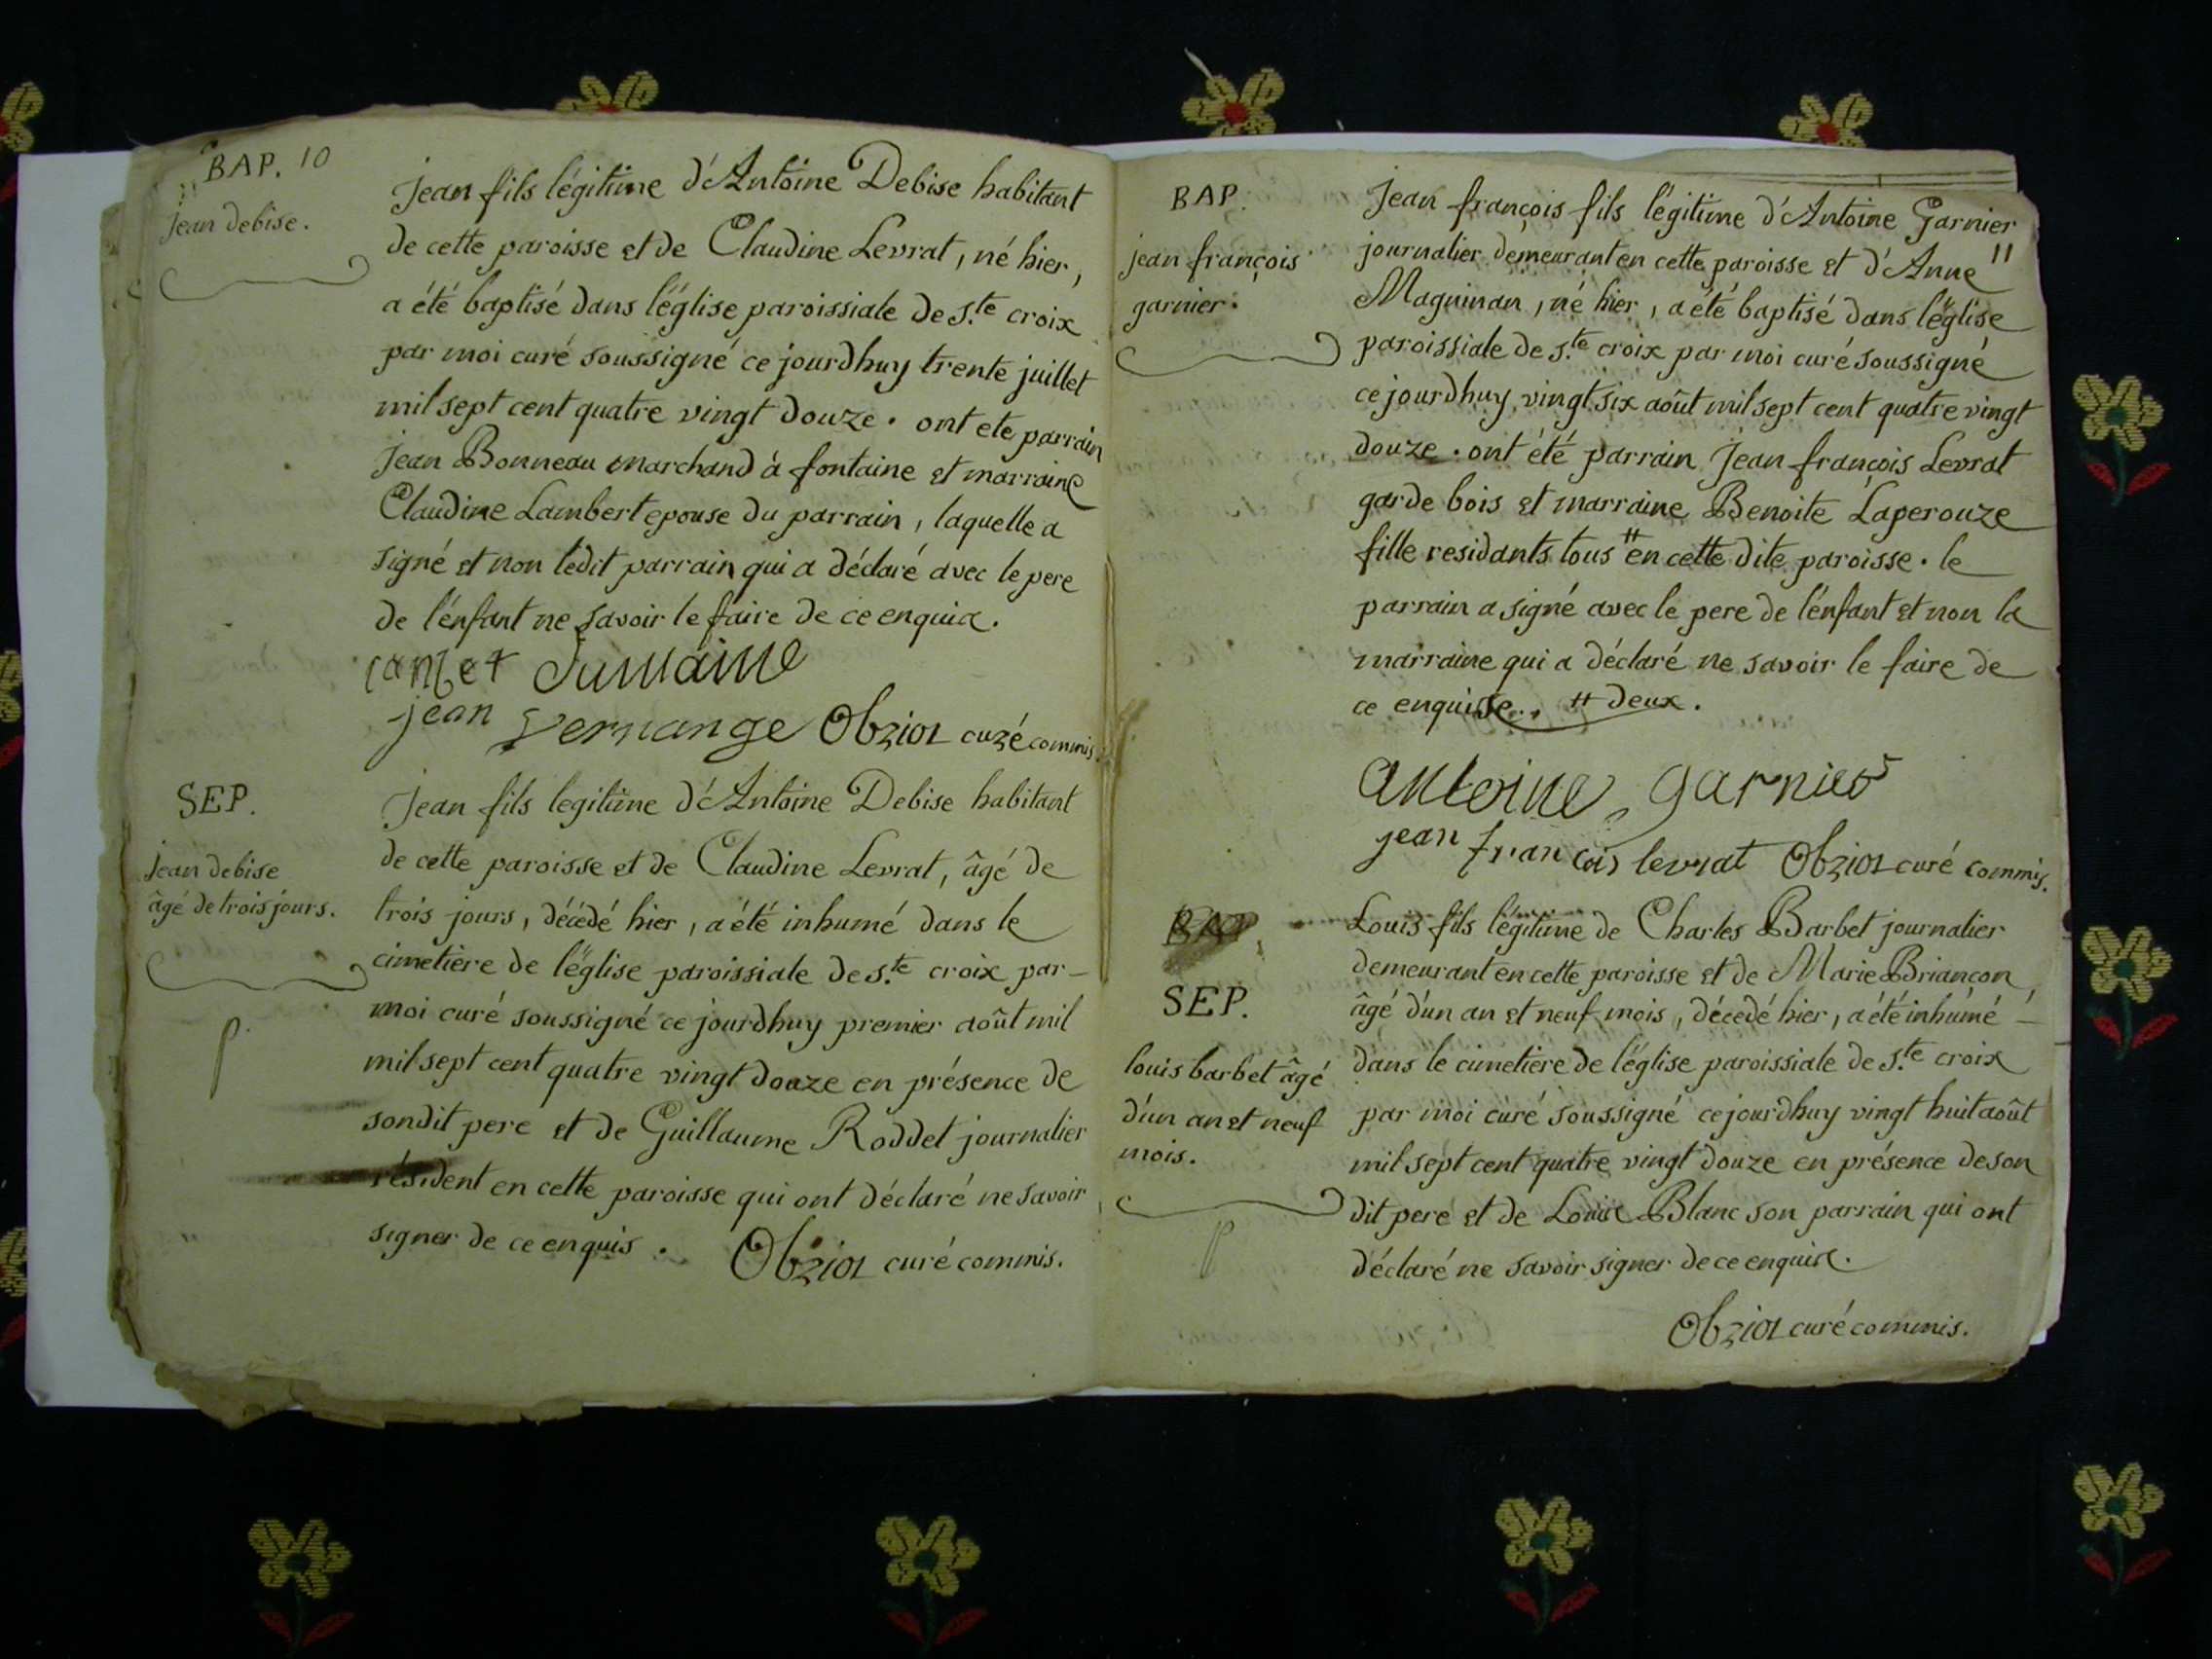 BAP. 10
jean debise.
jean fils légitime d'Antoine Debise habitant
de cette paroisse et de Claudine Levrat, né hier,
a été baptisé dans l'église paroissiale de s.te croix
par moi curé soussigné ce jourdhuy trente juillet
mil sept cent quatre vingt douze. ont ete parrain
jean Bonneau marchand à fontaine et marraine
Claudine Lambert epouse du parrain, laquelle a
signé et non ledit parrain qui a déclaré avec le pere
de l'énfant ne savoir le faire de ce enquis.
jean vernange curé commis.
SEP.
jean debise
âgé de trois jours.
jean fils legitime d'Antoine Debise habitant
de cette paroisse et de Claudine Levrat, âgé de
trois jours, décédé hier, a été inhumé dans le
cimetiere de l'église paroissiale de s.te croix par-
moi curé soussigné ce jourdhuy premier août mil
mil sept cent quatre vingt douze en présence de
sondit pere et de Guillaume Roddet journalier
résident en cette paroisse qui ont déclaré ne savoir
signer de ce enquis.
curé commis.
BAP.
jean françois
garnier.
11
jean françois fils légitime d'Antoine Garnier
journalier demeurant en cette paroisse et d'Anne
Maguinan, né hier, a été baptisé dans l'église
paroissiale de s.te croix par moi curé soussigné
ce jourdhuy vingt six août mil sept cent quatre vingt
douze. ont été parrain jean françois Levrat
garde bois et marraine Benoite Laperouze
fille residants tous # en cette dite paroisse. le
parrain a signé avec le pere de l'énfant et non la
marraine qui a déclaré ne savoir le faire de
ce enquise. # deux.
antoine garnier
jean francois levrat curé commis.
SEP.
louis barbet âgé
d'un an et neuf
mois.
Louis fils légitime de Charles Barbet journalier
demeurant en cette paroisse et de Marie Briançon,
âgé d'un an et neuf mois, décedé hier, a été inhumé -
dans le cimetiere de l'église paroissiale de s.te croix
par moi curé soussigné ce jourdhuy vingt huit août
mil sept cent quatre vingt douze en présence de son
dit pere et de Louis Blanc son parrain qui ont
déclaré ne savoir signer de ce enquis.
curé commis.